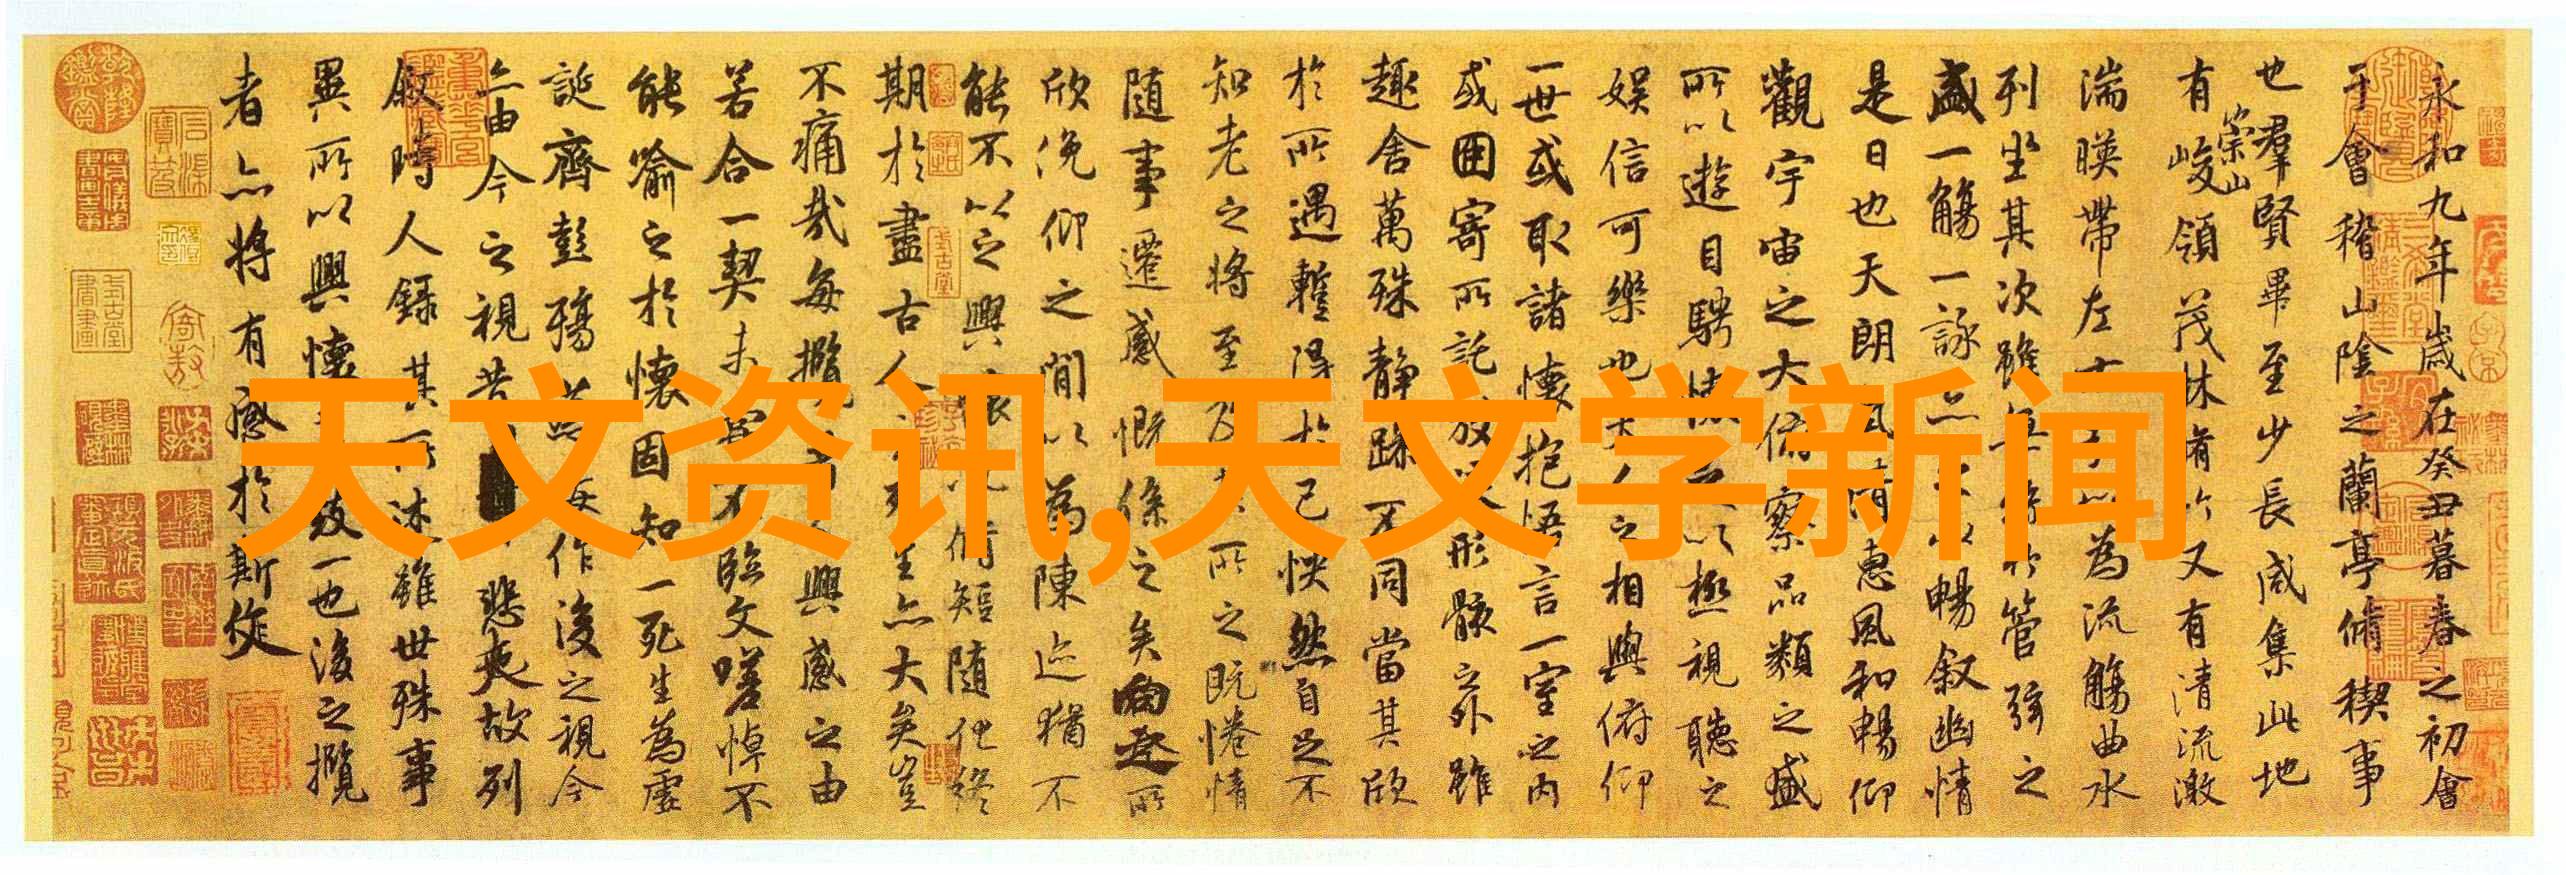 永和九年歲在癸丑暮春之初會
于會稽山陰之蘭亭脩稧事
也羣賢畢至少長咸集此地
有崇山峻領茂林脩竹又有清流激
湍暎帶左
為流觴曲水
列坐其次雖無絲竹管弦之
盛一觴一詠亦足以暢叙幽情
是日也天朗氣清惠風和暢仰
觀宇宙之大俯察品類之盛
所以遊目騁懷足以極視聽之
娛信可樂也夫人之相與俯仰
一世或取諸懷抱悟言一室之內
或因寄所託放浪形骸之外雖
趣舍萬殊靜躁不同當其欣
於所遇蹔得於己怏然自足不
知老之將至及其所之既惓情
隨事遷感慨係之矣向之所
欣俛仰之閒以為陳迹猶不
能不以之興懷況脩短隨化終
期於盡古人云死生亦大矣豈
不痛哉每攬昔人興感之由
若合一契未甞不臨文嗟悼不
能喻之於懷固知一死生為虛
誕齊彭殤為妄作後之視今
亦由今之視昔悲夫故列
叙時人錄其所述雖世殊事
異所以興懷其致一也後之攬
者亦將有感於斯
天文资讯,天文学新闻